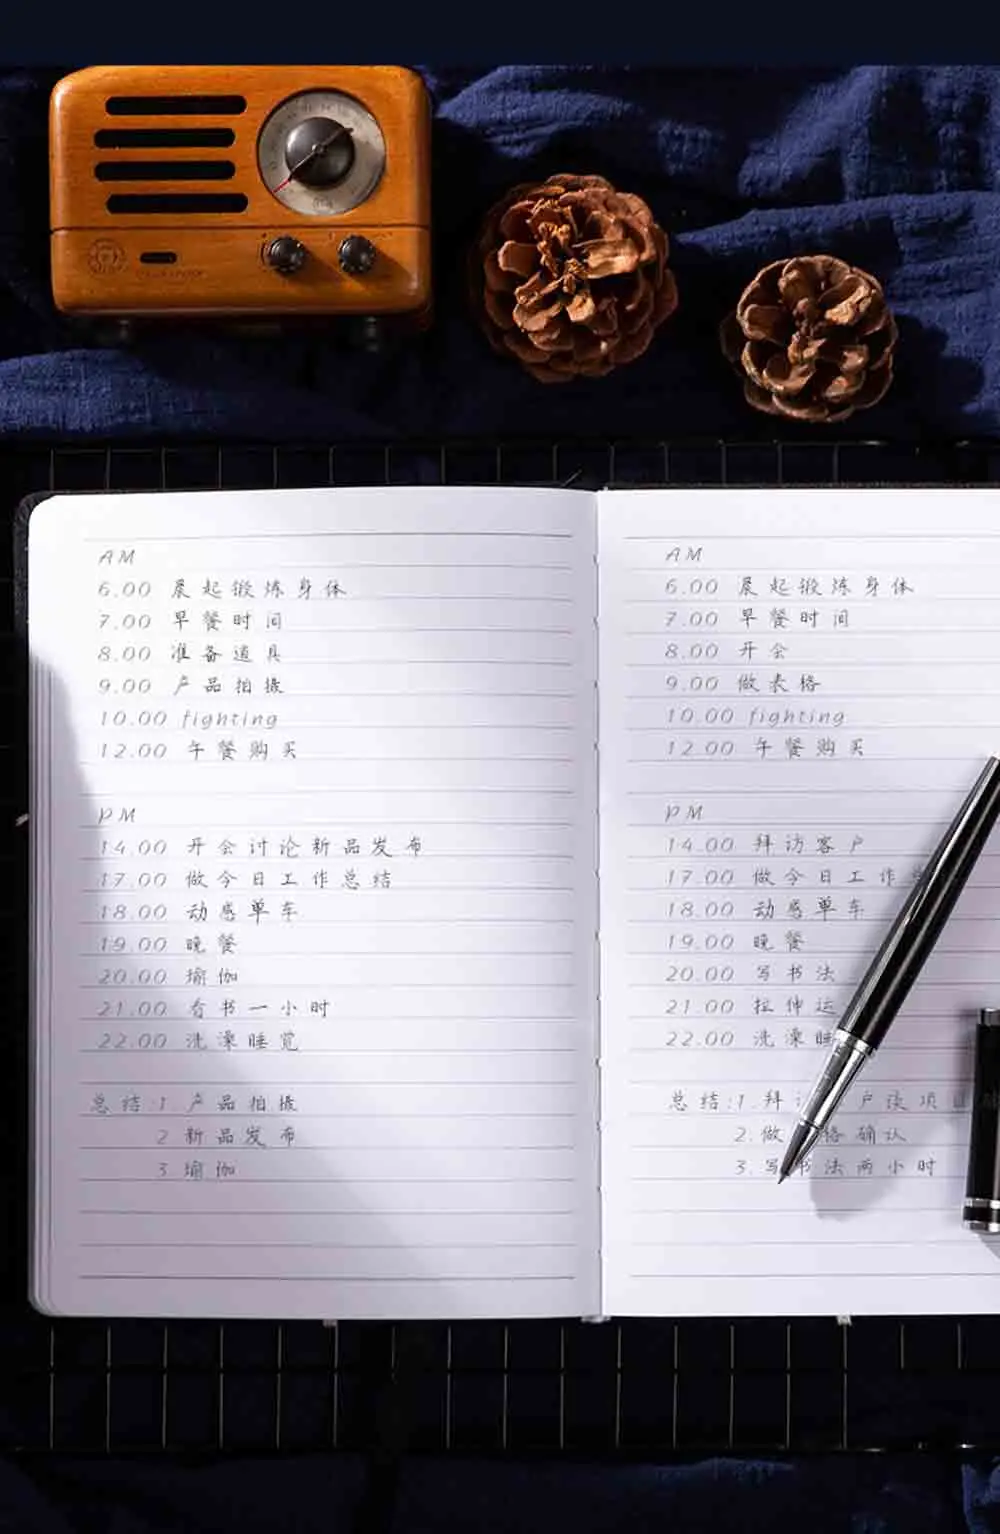 AM
6.00 晨起锻炼身体
7.00 早餐时间
8.00 准备道具
9.00 产品拍摄
10.00 fighting
12.00 午餐购买
PM
14.00 开会讨论新品发布
17.00 做今日工作总结
18.00 动感单车
19.00 晚餐
20.00 瑜伽
21.00 看书一小时
22.00 洗澡睡觉
总结:1 产品拍摄
2 新品发布
3 瑜伽
AM
6.00 晨起锻炼身体
7.00 早餐时间
8.00 开会
9.00 做表格
10.00 fighting
12.00 午餐购买
PM
14.00 拜访客户
17.00 做今日工作总
18.00 动感单车
19.00 晚餐
20.00 写书法
21.00 拉伸运
22.00 洗澡睡
总结:1.拜访 户谈项目
2.做 格确认
3.写书法两小时